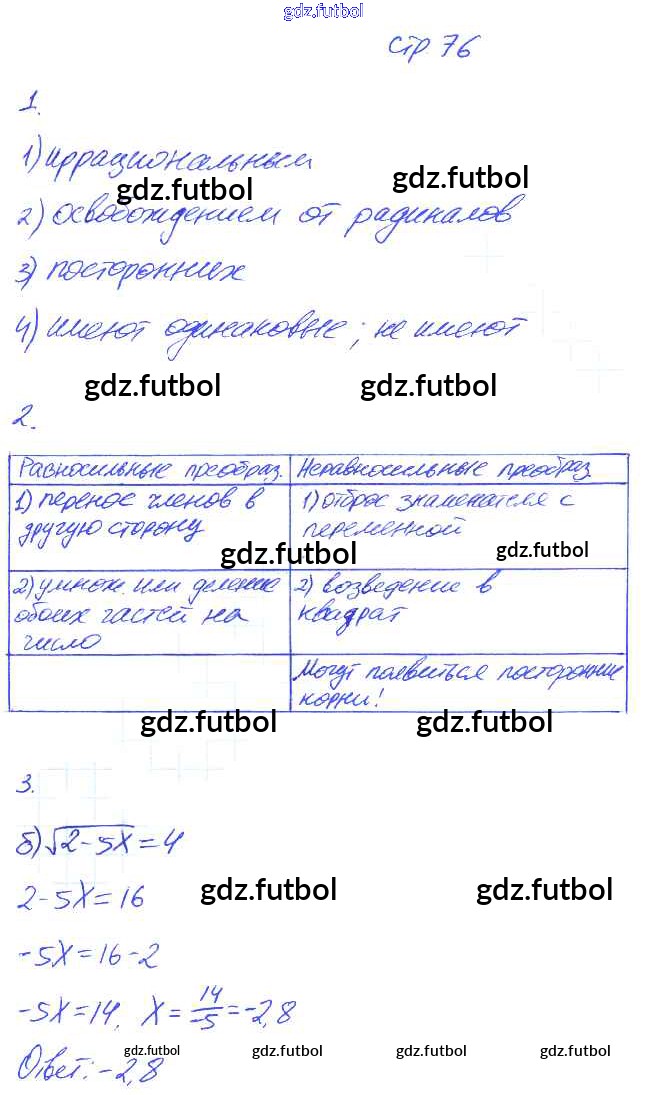 gdz.futbol
стр 76
1.
1) иррациональным
gdz.futbol gdz.futbol
2) освобождением от радикалов
3) посторонних
4) имеют одинаковые; не имеют
gdz.futbol gdz.futbol
2.
Равносильные преобраз. Неравносильные преобраз
1) перенос членов в
другую сторону
1) отброс знаменателя с
переменной
gdz.futbol gdz.futbol
2) умнож. или деление
обоих частей на
число
2) возведение в
квадрат
Могут появиться посторонние
корни!
gdz.futbol gdz.futbol
3.
б) √2-5X = 4
2-5X = 16
gdz.futbol gdz.futbol
-5X = 16-2
-5X = 14, X = 14/-5 = -2,8
Ответ: -2,8
gdz.futbol gdz.futbol gdz.futbol gdz.futbol